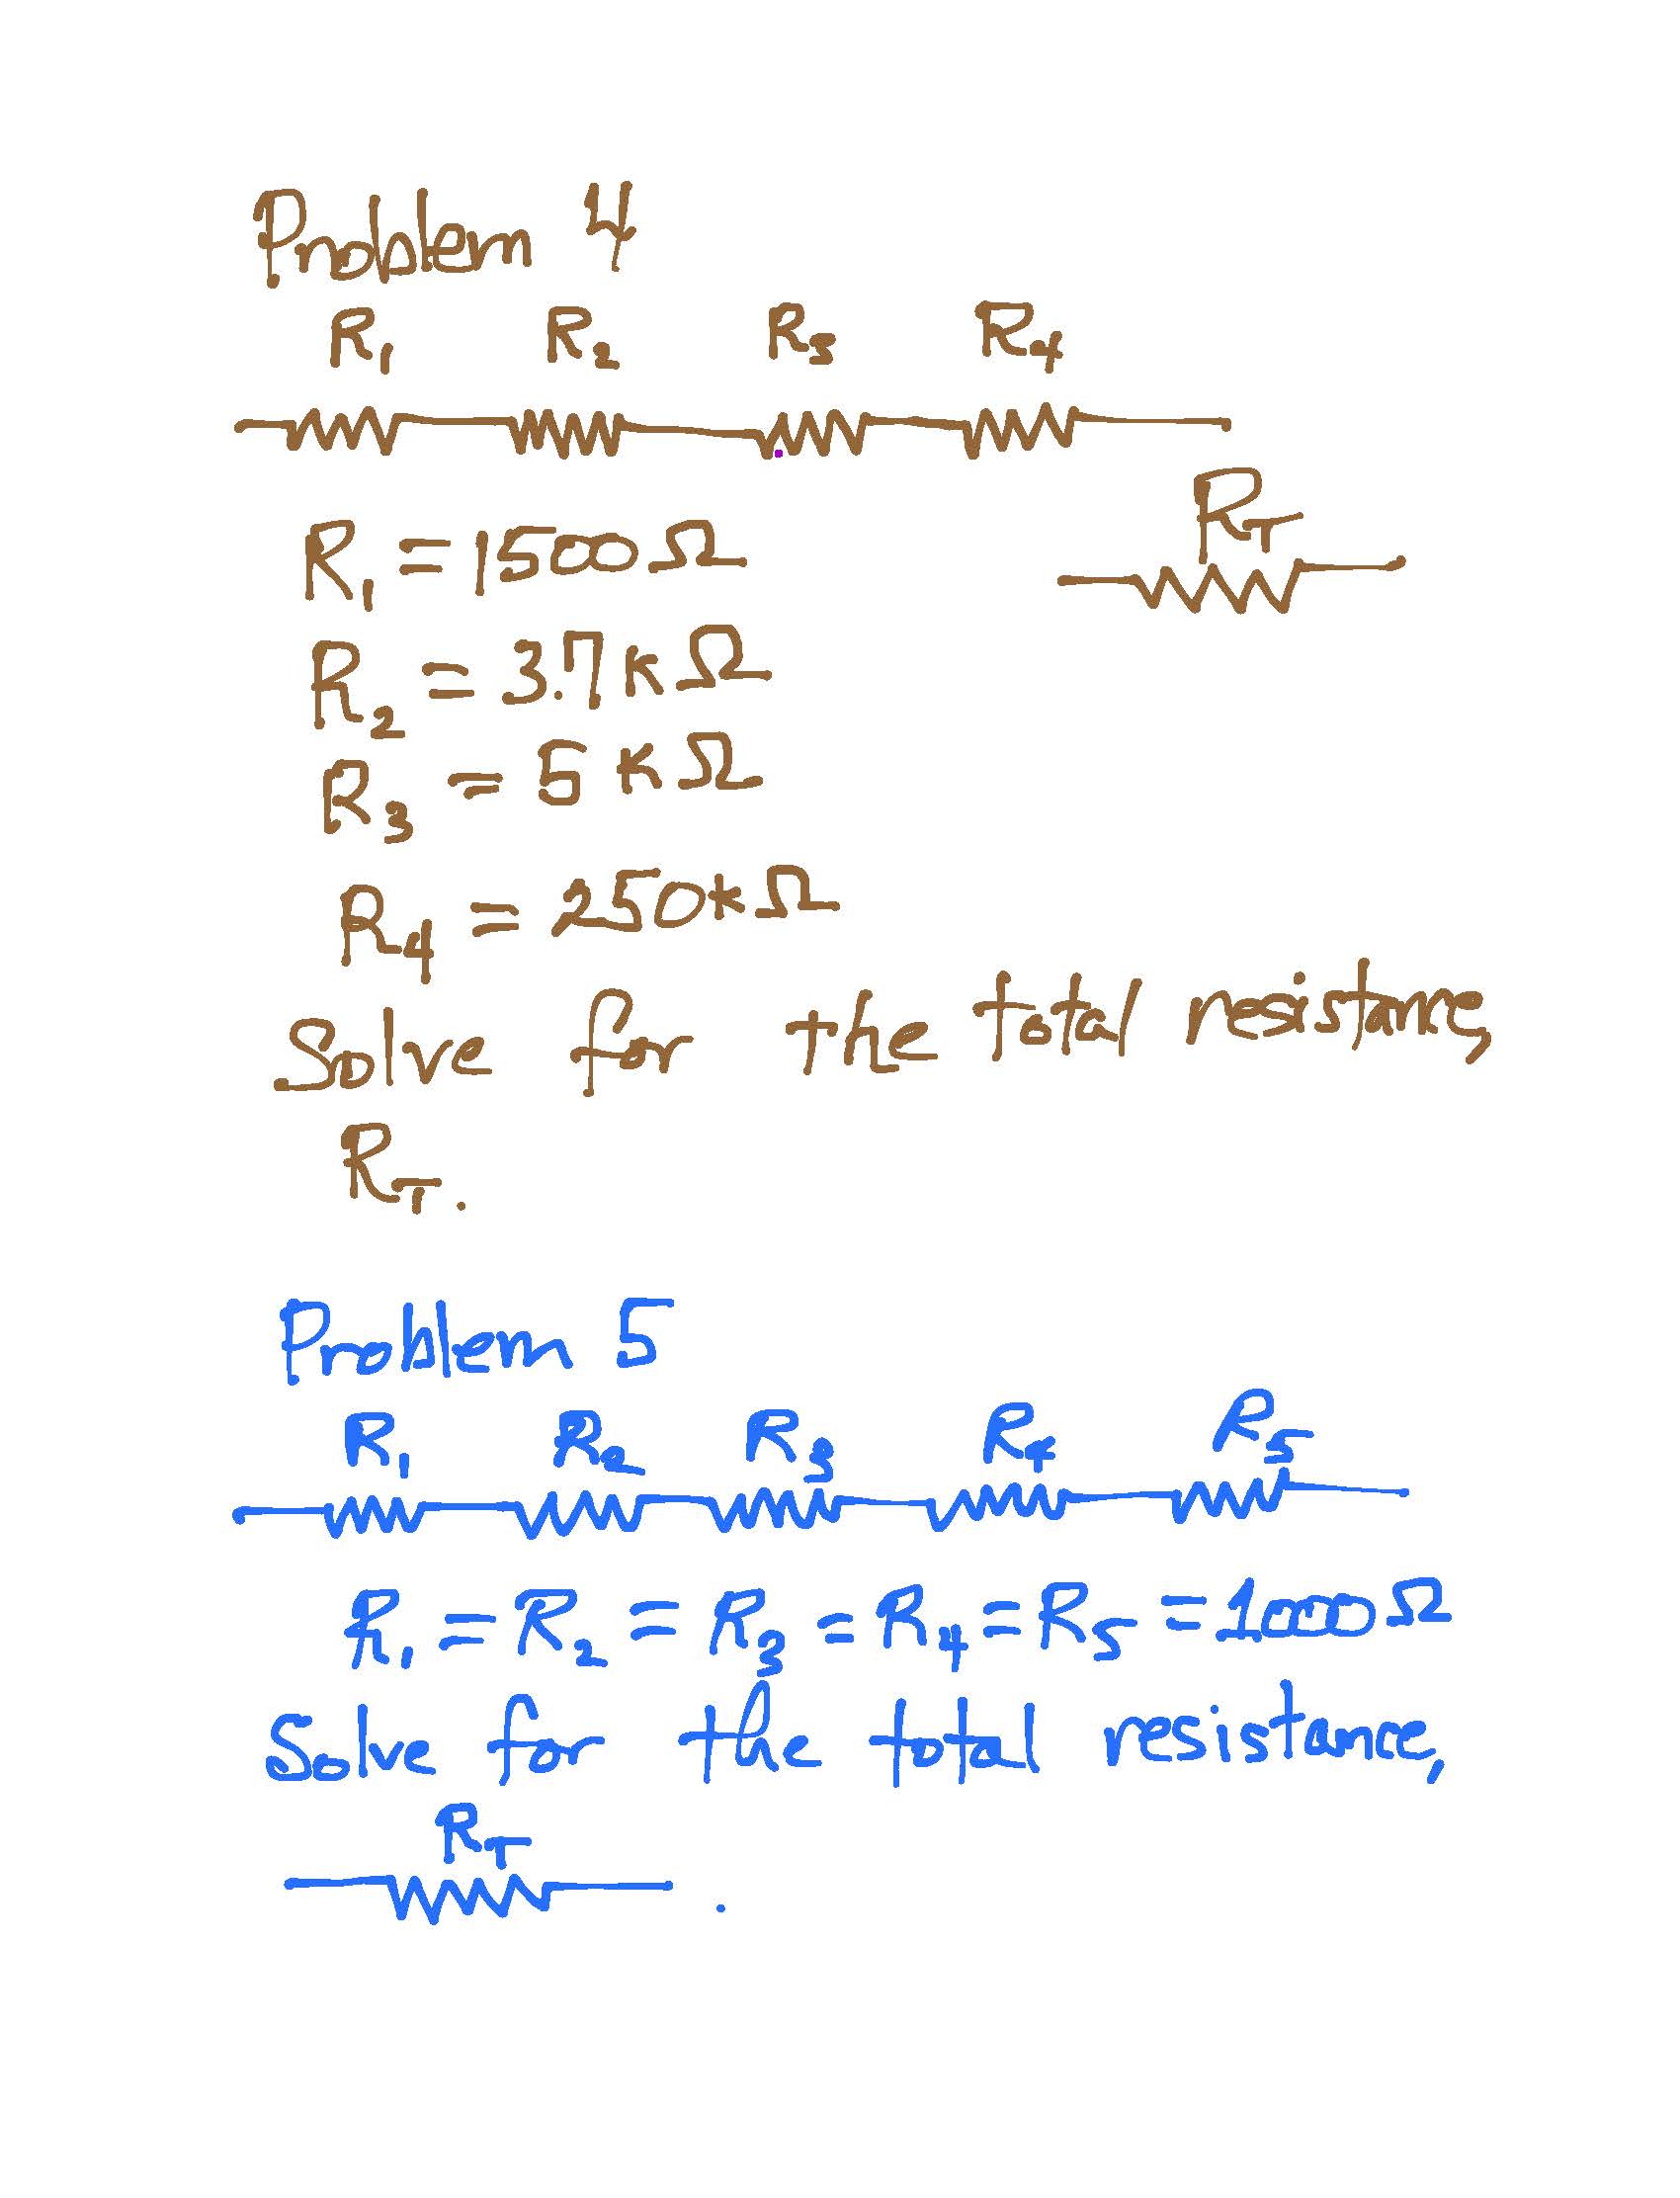 Problem 4
R₁ R₂ R₃ R₄
R_T
R₁ = 1500 Ω
R₂ = 3.7 k Ω
R₃ = 5 k Ω
R₄ = 250 k Ω
Solve for the total resistance,
R_T.
Problem 5
R₁ R₂ R₃ R₄ R₅
R₁ = R₂ = R₃ = R₄ = R₅ = 1000 Ω
Solve for the total resistance,
R_T .